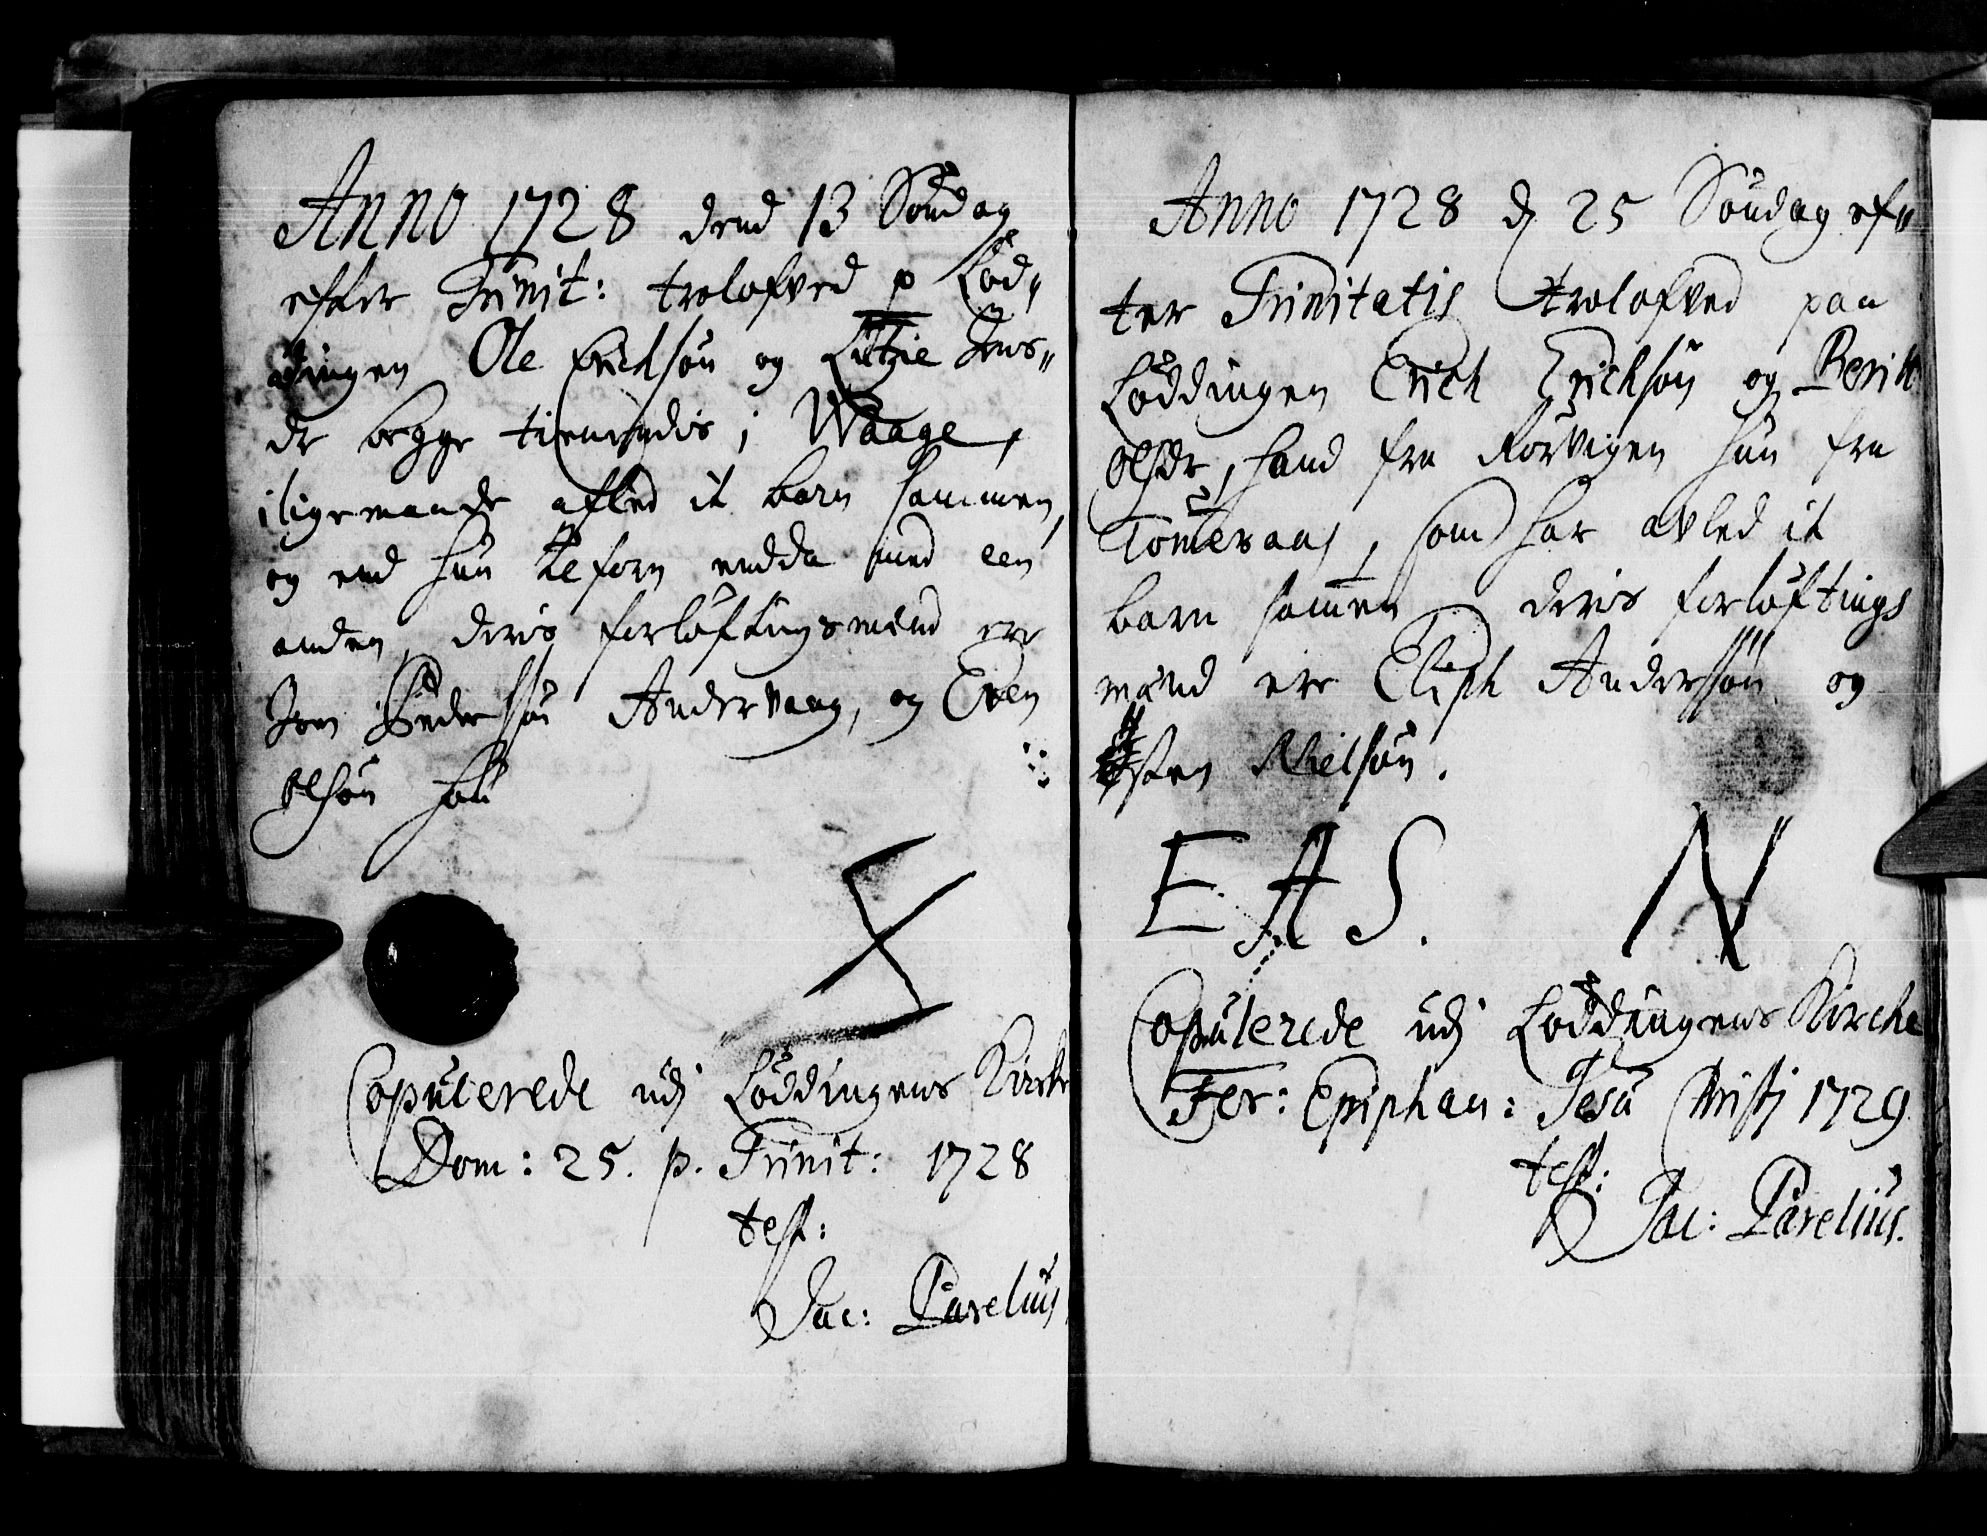 Anno 1728 dend 13 Søndag
efter Trinit: trolofved p Lød„
dingen Ole Erichsøn og Litzie Jens„
dr begge tienendis i Waage,
iligemaade afled it barn sammen,
og end hun tilforn endda med een
anden, deris forløftingsmend ere
Jon Pedersøn Andervaag, og Even
Olsøn
Copulerede udj Løddingens Kirche
Dom: 25. p. Trinit: 1728
test:
Jac: Parelius
Anno 1728 d 25 Søndag ef„
ter Trinitatis trolofved paa
Løddingen Erich Erichsøn og Berit
Olsdr, hand fra Rørvigen hun fra
Tømeraas, som har avled it
barn sammen deris forløftings
mænd ere Eliph Andersøn og
Østen Nielsøn.
E. A S. N
Copulerede udj Løddingens Kirche
Fer: Epiphan: Jesu Christj 1729
test:
Jac: Parelius.